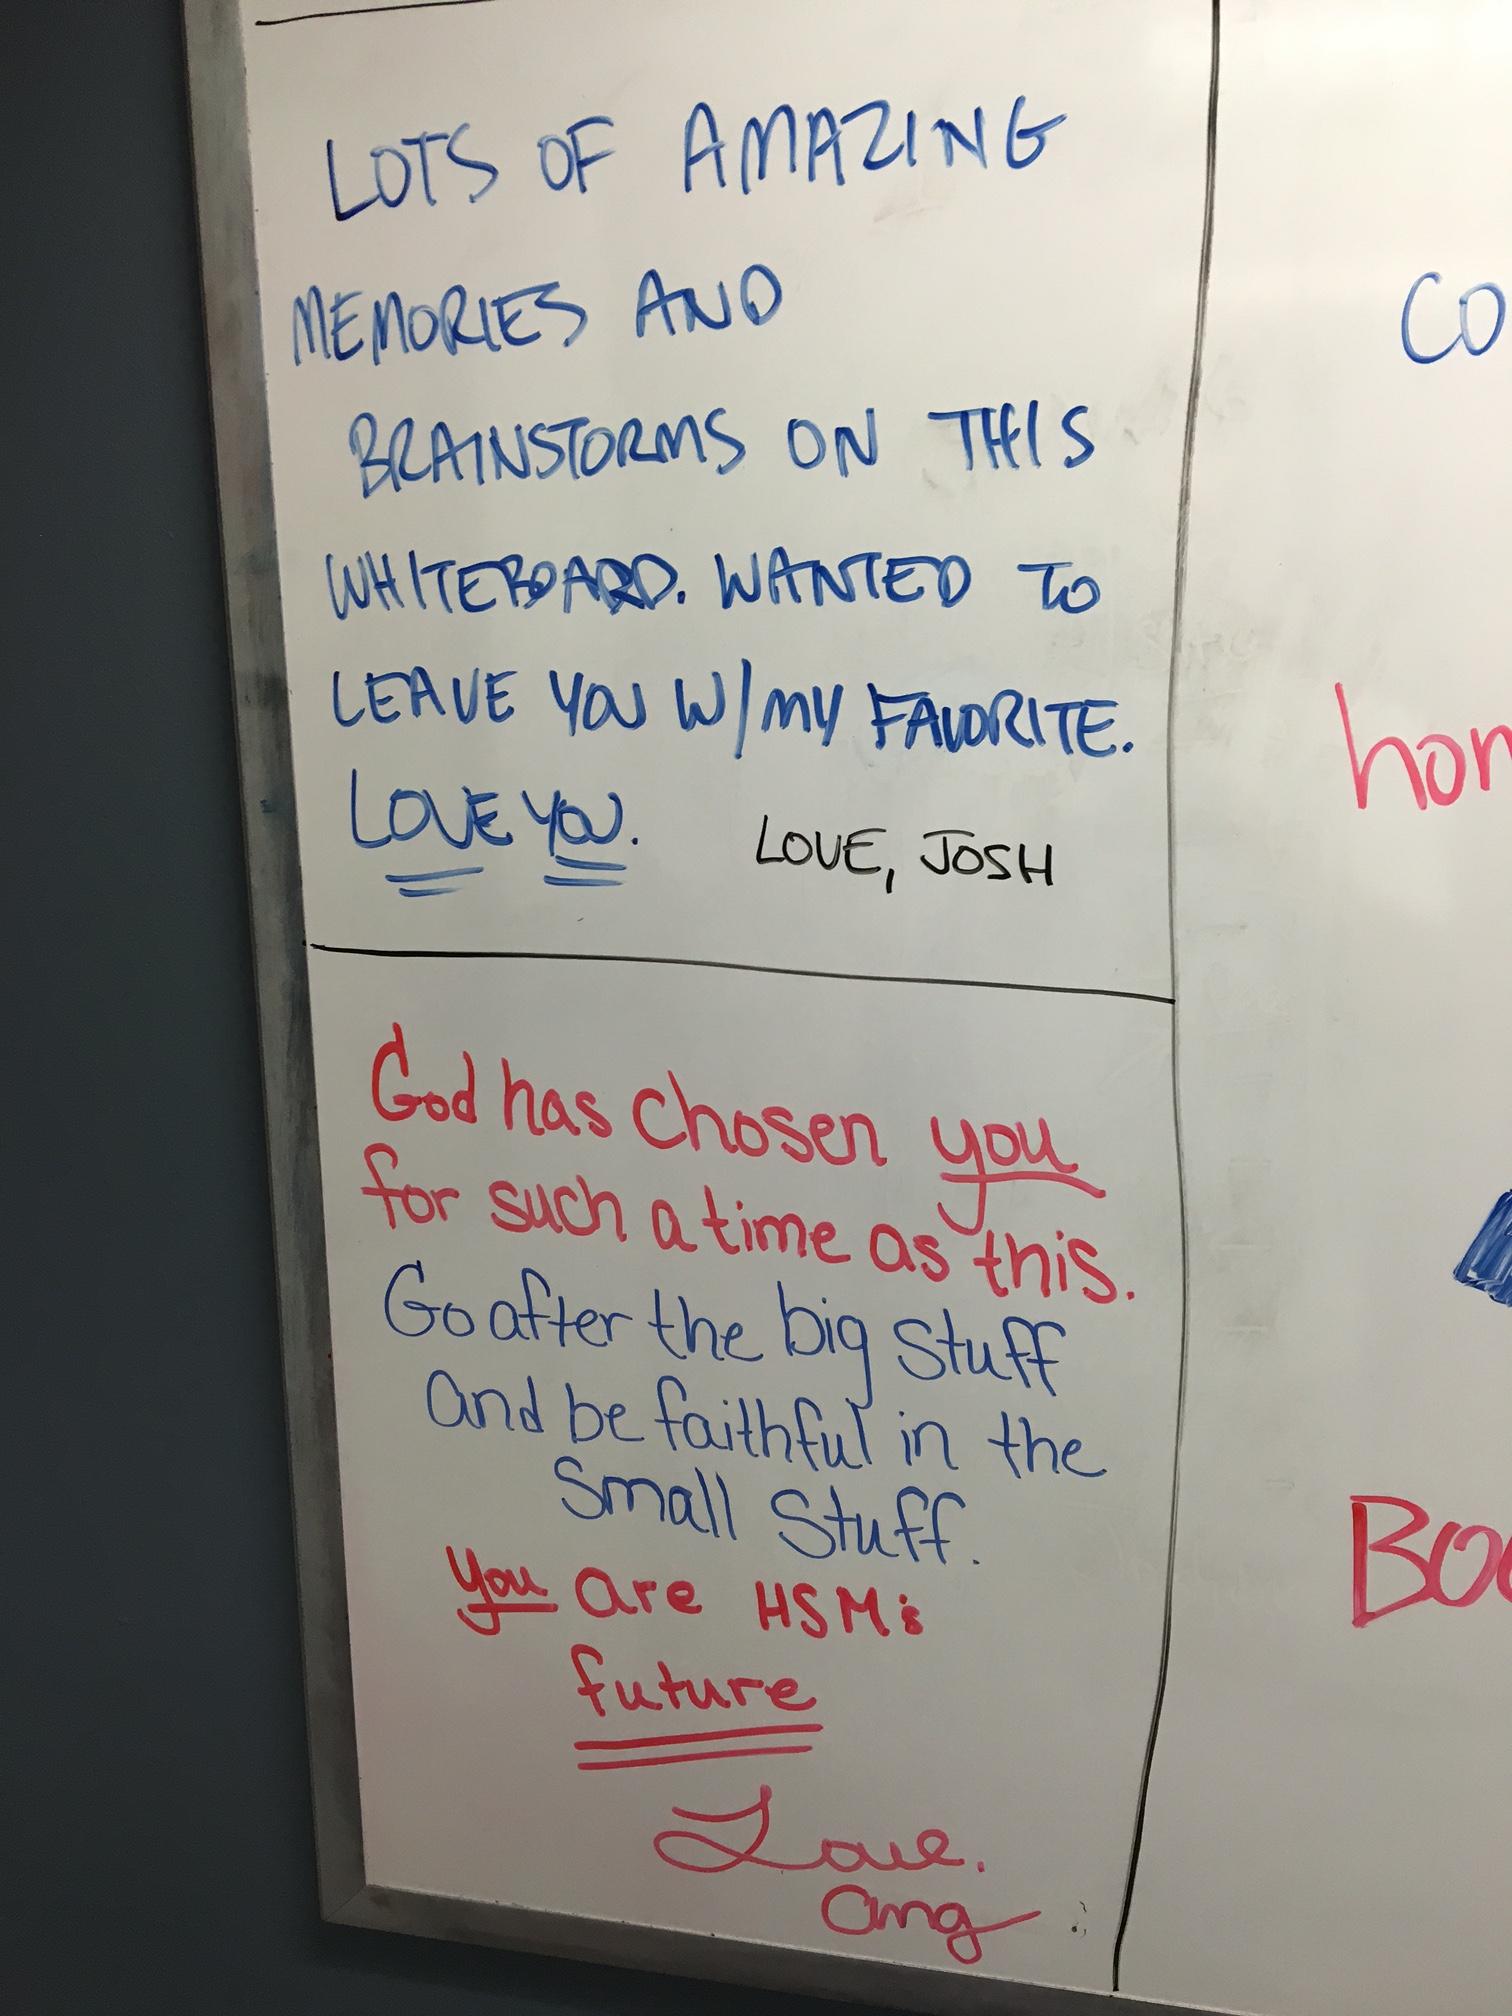 LOTS OF AMAZING
MEMORIES AND
BRAINSTORMS ON THIS
WHITEBOARD. WANTED TO
LEAVE YOU W/MY FAVORITE.
LOVE YOU.
LOVE, JOSH
God has chosen you
for such a time as this.
Go after the big stuff
and be faithful in the
small stuff.
you are HSM's
future
Love,
Ang
CO
hom
Boo